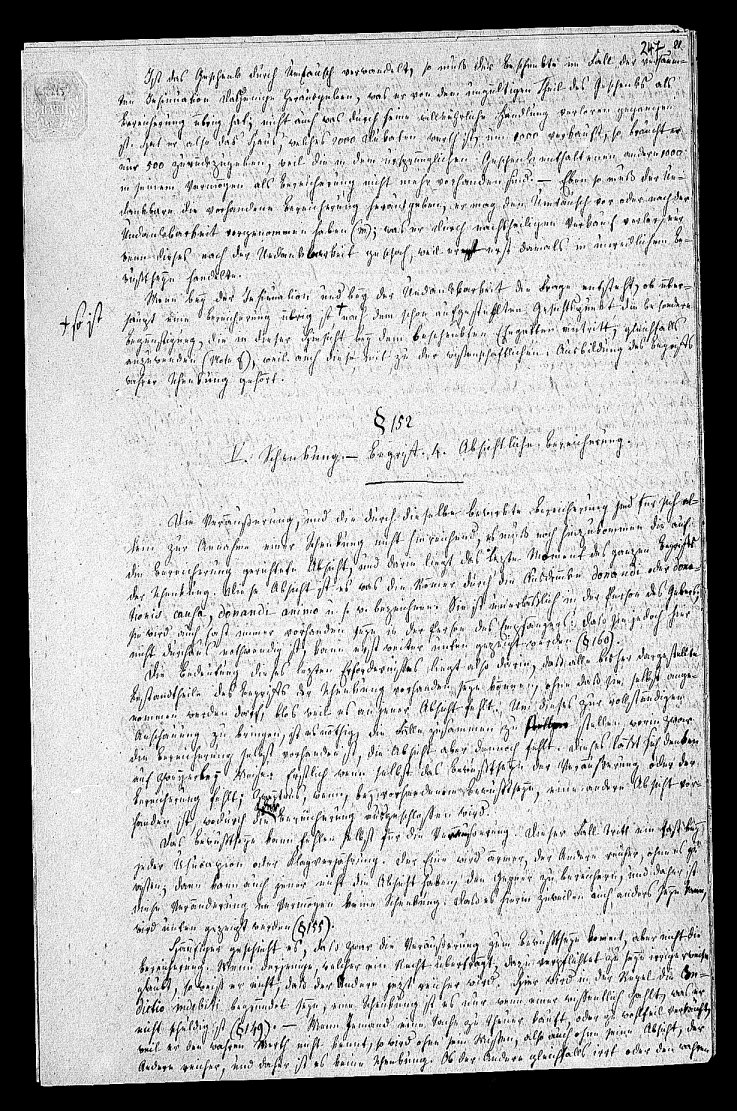 247
Ist das Geschenk durch Umtausch verwandelt, so muß der Beschenkte im Fall der versäum-
ten Insinuation dasjenige herausgeben, was er von dem ungültigen Theil des Geschenks als
Bereicherung übrig hat, nicht auch was durch seine willkührliche Handlung verloren gegangen
ist. Hat er also das Haus, welches 2000 Dukaten werth ist, um 1000 verkauft, so braucht er
nur 500 zurückzugeben, weil die in dem ursprünglichen Geschenk enthaltenen andern 1000
in seinem Vermögen als Bereicherung nicht mehr vorhanden sind. — Eben so muß der Un-
dankbare die vorhandene Bereicherung herausgeben, er mag den Umtausch vor oder nach der
Undankbarkeit vorgenommen haben (m); was er durch nachtheiligen Verkauf verlor, nur
wenn dieses nach der Undankbarkeit geschah, weil er erst damals in unredlichem Be-
wußtseyn handelte.
Wenn bey der Insinuation und bey der Undankbarkeit die Frage entsteht, ob über-
haupt eine Bereicherung übrig ist, nach dem schon aufgestellten Gesichtspunkt die besondere
+ so ist
Begünstigung, die in dieser Hinsicht bey dem beschenkten Ehegatten eintritt, gleichfalls
anzuwenden (Note g), weil auch diese mit zu der wissenschaftlichen Ausbildung des Begriffs
wahrer Schenkung gehört.
§ 152
V. Schenkung. — Begriff. 4. Absichtliche Bereicherung.
Die Veräußerung, und die durch dieselbe bewirkte Bereicherung sind für sich al-
lein zur Annahme einer Schenkung nicht hinreichend, es muß noch hinzukommen die auf
die Bereicherung gerichtete Absicht, und darin liegt das letzte Moment des ganzen Begriffs
der Schenkung. Diese Absicht ist es was die Römer durch die Ausdrücke donandi oder dona-
tionis causa, donandi animo u. s. w. bezeichnen. Sie ist unerläßlich in der Person des Gebers,
sie wird auch fast immer vorhanden seyn in der Person des Empfängers: daß sie jedoch hier
nicht durchaus nothwendig ist, kann erst weiter unten gezeigt werden (§ 160).
Die Bedeutung dieses letzten Erfordernisses liegt also darin, daß alle bisher dargestellte
Bestandtheile des Begriffs der Schenkung vorhanden seyn können, ohne daß sie selbst ange-
nommen werden darf, blos weil es an jener Absicht fehlt. Um dieses zur vollständigen
Anschauung zu bringen, ist es nöthig, die Fälle zusammen zu stellen, worin zwar
die Bereicherung selbst vorhanden ist, die Absicht aber dennoch fehlt. Dieses läßt sich denken
auf zweyerley Weise: erstlich wenn selbst das Bewußtseyn der Veräußerung oder der
Bereicherung fehlt; zweytens, wenn, bey vorhandenem Bewußtseyn, eine andere Absicht vor-
handen ist, wodurch die Bereicherung ausgeschlossen wird.
Das Bewußtseyn kann fehlen selbst für die Veräußerung. Dieser Fall tritt ein fast bey
jeder Usucapion oder Klagverjährung. Der Eine wird ärmer, der Andere reicher, ohne es zu
wissen; dann kann auch jener nicht die Absicht haben, den Gegner zu bereichern, und daher ist
diese Veränderung im Vermögen keine Schenkung. Daß es hierin zuweilen auch anders seyn kann,
wird unten gezeigt werden (§ 155).
Häufiger geschieht es, daß zwar die Veräußerung zum Bewußtseyn kommt, aber nicht die
Bereicherung. Wenn derjenige, welcher ein Recht überträgt, dazu verpflichtet zu seyn irrigerweise
glaubt, so weiß er nicht, daß der Andere jetzt reicher wird. Hier wird in der Regel die Con-
dictio indebiti begründet seyn; eine Schenkung ist es nur wenn einer wissentlich zahlt, was er
nicht schuldig ist (§ 149). — Wenn Jemand eine Sache zu theuer kauft, oder zu wohlfeil verkauft,
weil er den wahren Werth nicht kennt, so wird ohne sein Wissen, also auch ohne seine Absicht, der
Andere reicher, und daher ist es keine Schenkung. Ob der Andere gleichfalls irrt oder den wahren